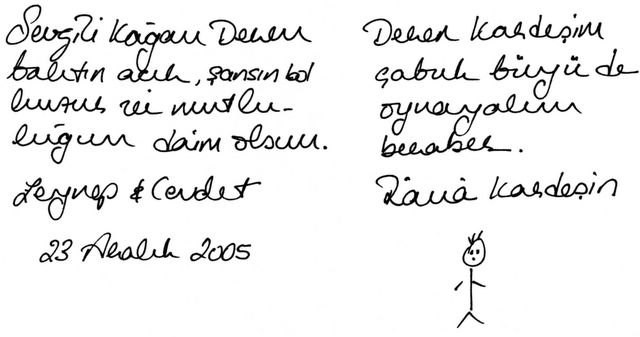 Sevgili Kağan Deren
bahtın açık, şansın bol
huzur ve mutlu-
luğun daim olsun.
Zeynep & Cevdet
23 Aralık 2005
Deren Kardeşim
çabuk büyü de
oynayalım
beraber.
Rânâ Kardeşin